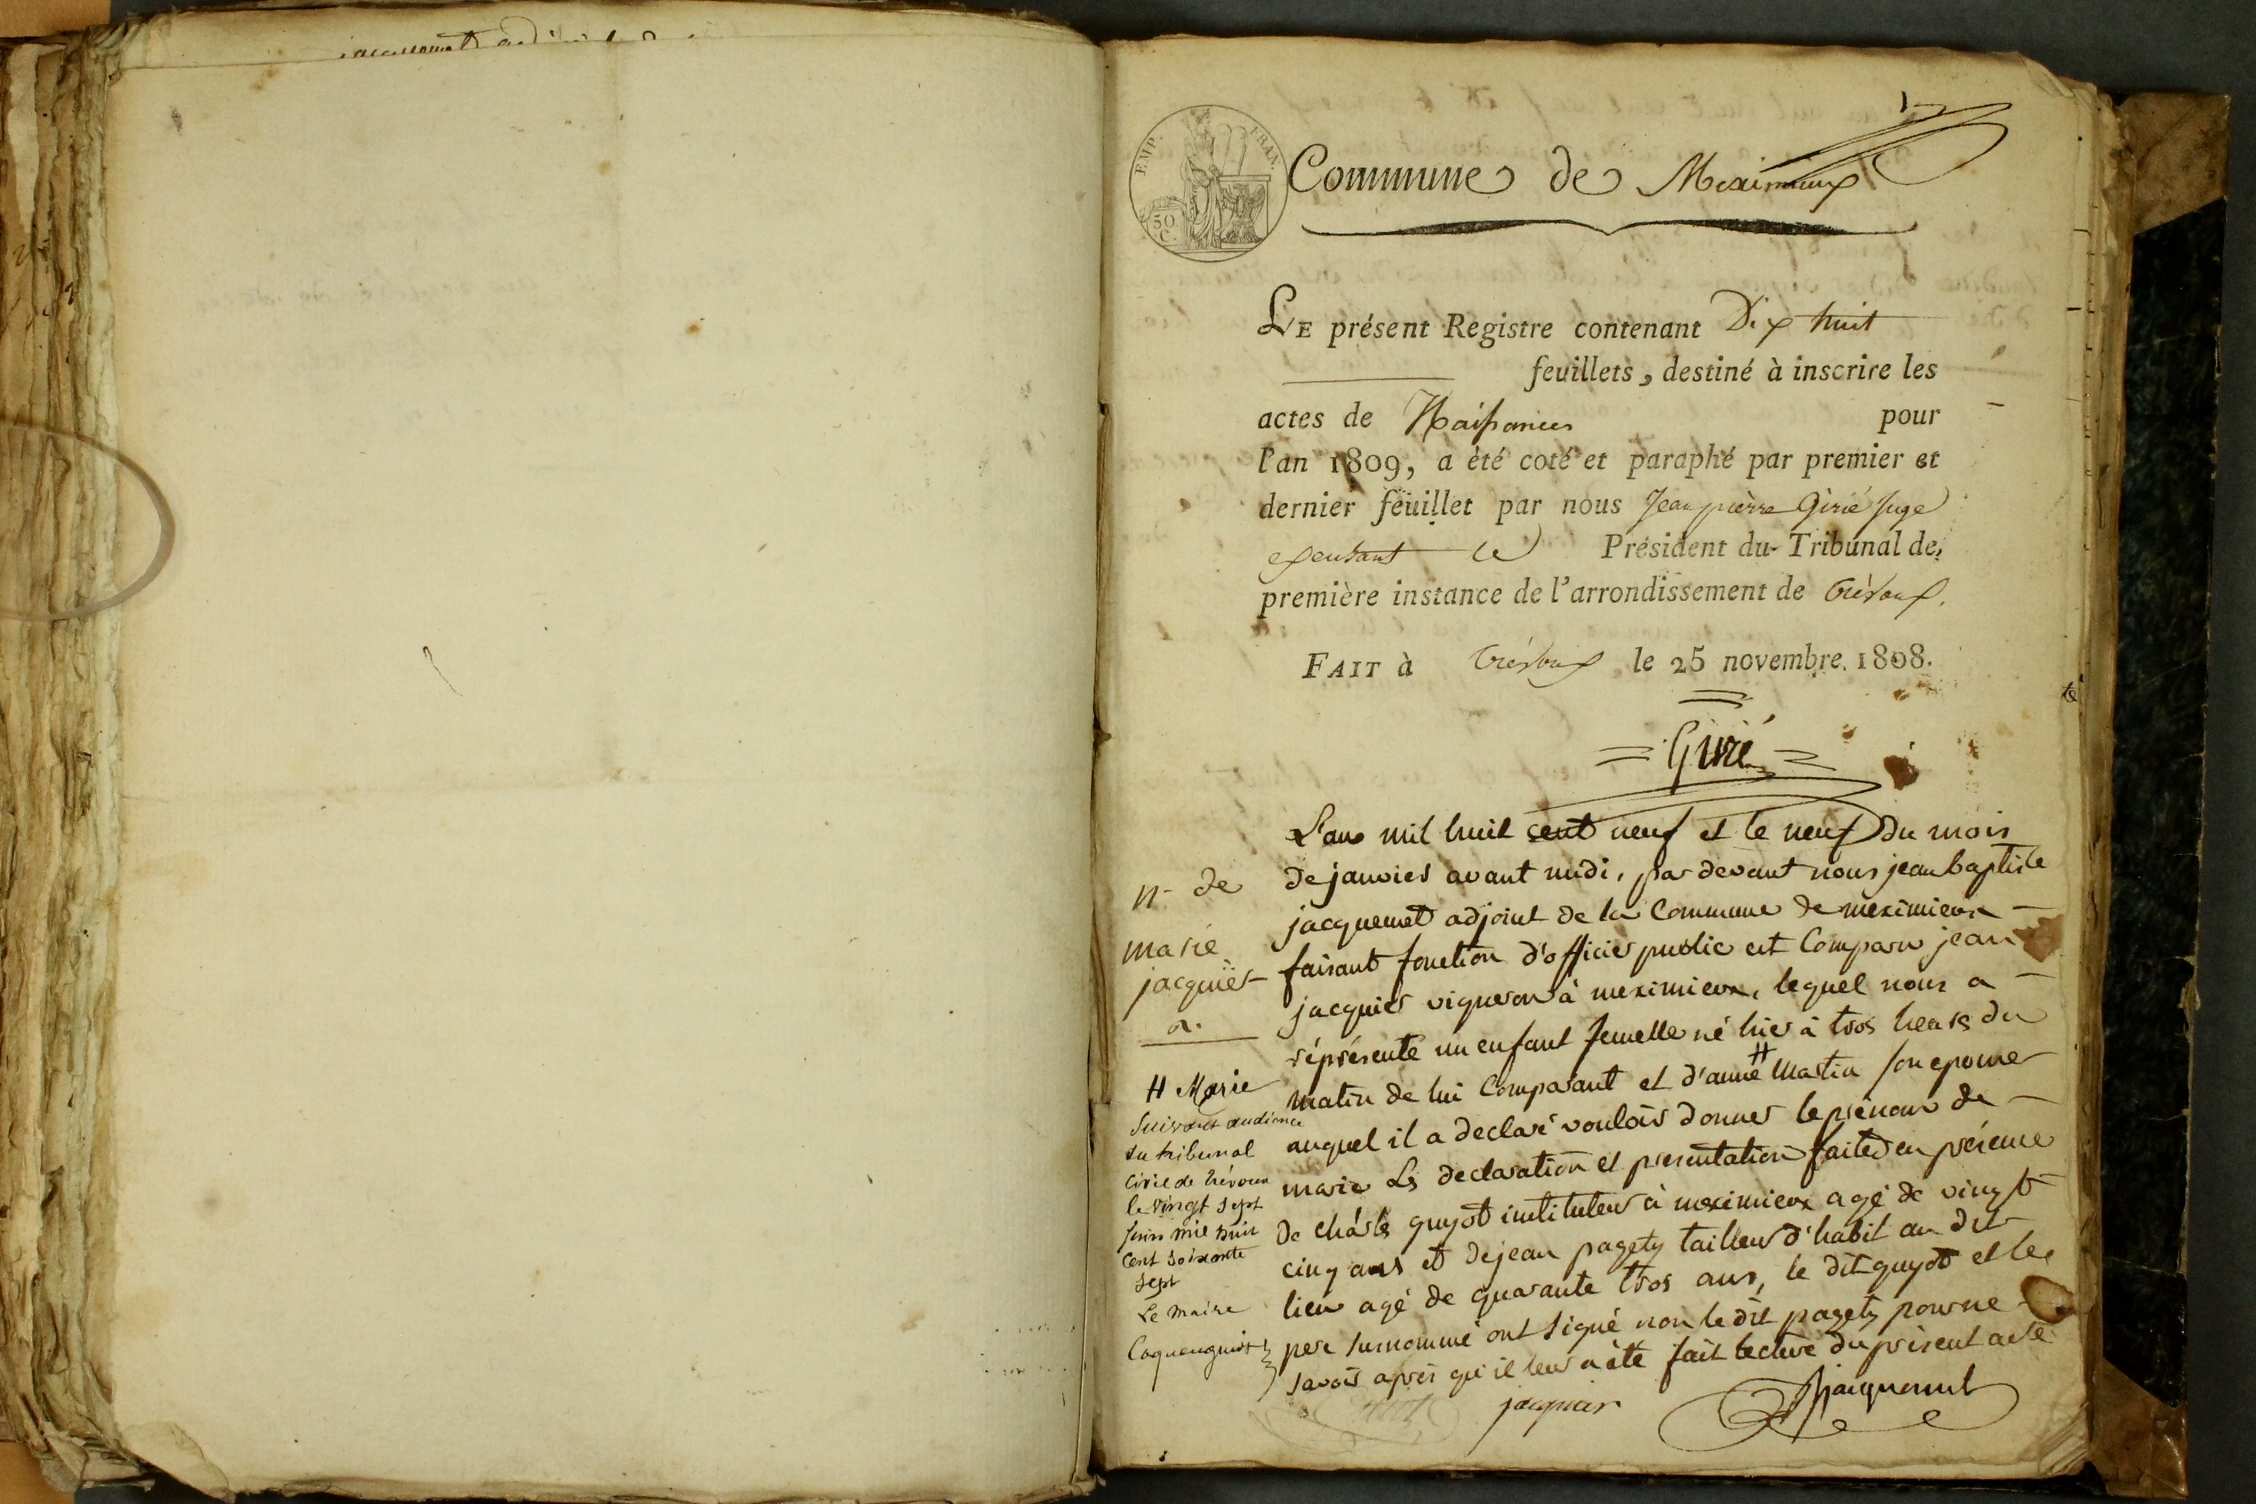 EMP. FRAN.
50
C.
Commune de Meximieux
LE présent Registre contenant Dix huit
feuillets, destiné à inscrire les
actes de Naissances pour
l'an 1809, a été coté et paraphé par premier et
dernier feuillet par nous Jean pierre Girié Juge
exerçant le Président du Tribunal de
première instance de l'arrondissement de Trévoux.
FAIT à Trévoux le 25 novembre. 1808.
Girié
n. de
marie
jacquier
L'an mil huit cent neuf et le neuf du mois
de janvier avant midi, par devant nous jean baptiste
jacquemet adjoint de la Commune de meximieux
faisant fonction d'officier public est Comparu jean
jacquier vigneron à meximieux, lequel nous a
réprésenté un enfant femelle né hier à trois heures du
matin de lui Comparant et d'anne # Martin son epouse
auquel il a declaré vouloir donner le prénom de
marie Ls declaration et presentation faites en présence
de charles guyot instituteur à meximieux agé de vingt
cinq ans et de jean pagety tailleur d'habit au dit
lieu agé de quarante trois ans, le dit guyot et le
pere surnommé ont signé non le dit pagety pour ne
savoir après qu'il leur a été fait lecture du présent acte
# Marie
Suivant audience
du tribunal
Civil de Trévoux
le vingt sept
Juin mil huit
Cent soixante
sept
Le Maire
jacquier
Jacquemet